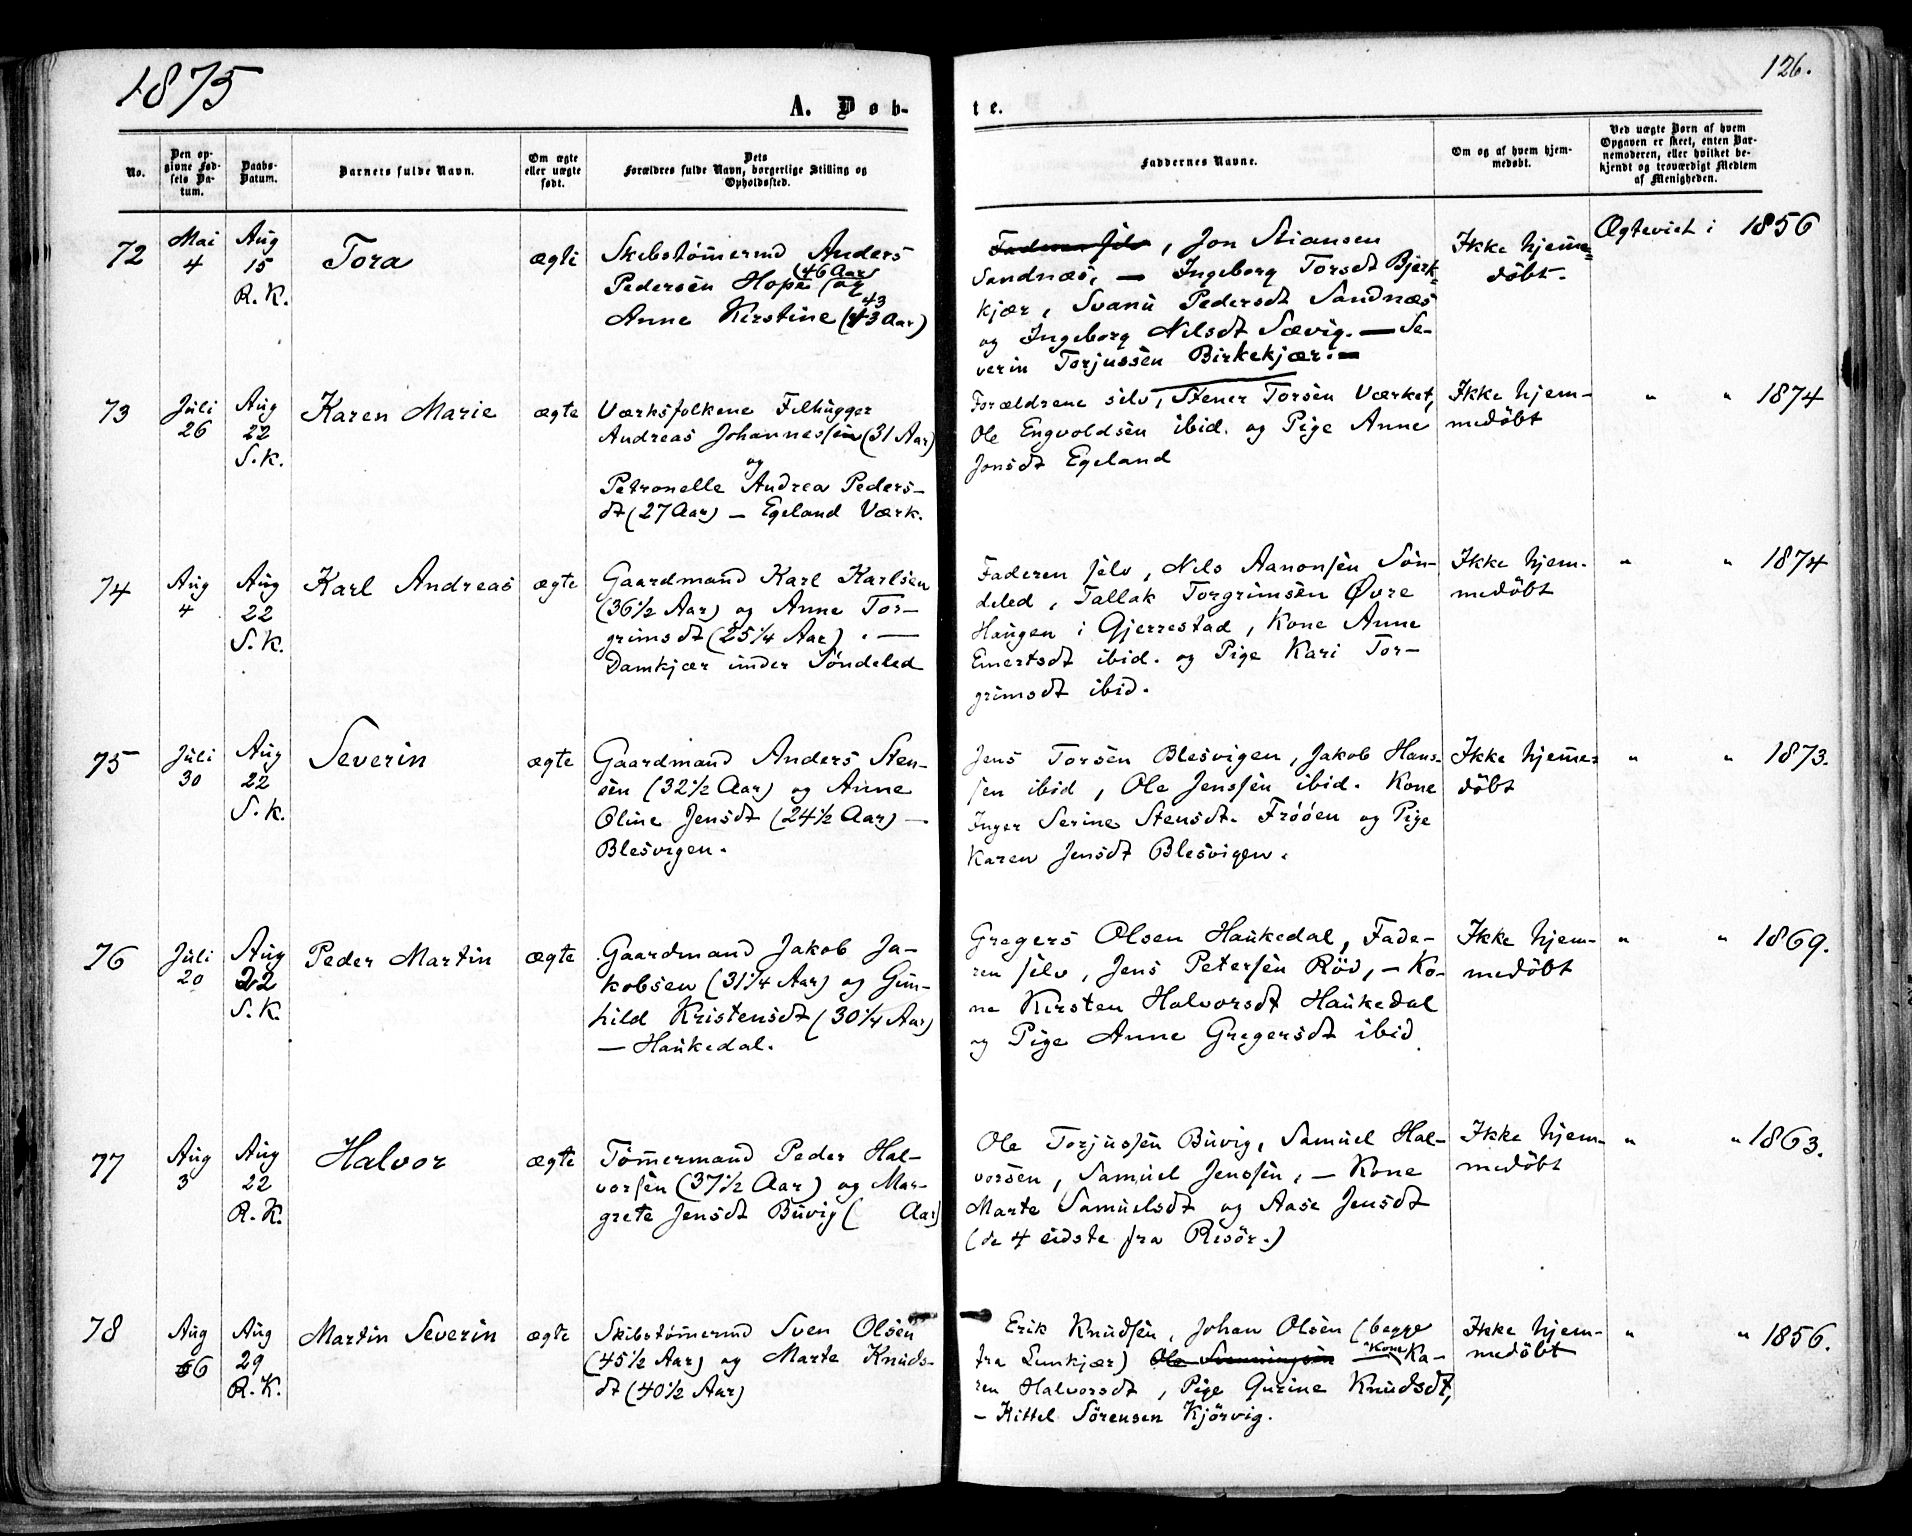 1875
126.
A. Døb-
te.
No.
Den op-
givne Fød-
sels Da-
tum.
Daabs-
Datum.
Barnets fulde Navn.
Om ægte
eller uægte
født.
Dets
Forældres fulde Navn, borgerlige Stilling og
Opholdssted.
Faddernes Navne.
Om og af hvem hjem-
medøbt.
Ved uægte Børn af hvem
Opgaven er skeet, enten Bar-
nemoderen, eller hvilket be-
kjendt og troværdigt Medlem
af Menigheden.
72
Mai
4
Aug
15
R. K.
Tora
ægte
Skibstømermd Anders
Pedersen Hope (46 Aar) og
Anne Kirstine (43 Aar)
43
Faderen selv, Jon Stiansen
Sandnæs, — Ingeborg Torsdt Bjerk-
kjær, Svanu Pedersdt Sandnæs
og Ingeborg Nilsdt Sævig. — Se-
verin Torjussen Birkekjær. —
Ikke hjeme-
döbt.
Ægteviet i 1856
73
Juli
26
Aug
22
S. K.
Karen Marie
ægte
Værksfolkene Filhugger
Andreas Johannessen (31 Aar)
og
Petronelle Andrea Peders-
dt (27 Aar) — Egeland Værk.
Forældrene selv, Stener Torsen Værket,
Ole Engvoldsen ibid. og Pige Anne
Jonsdt Egeland
Ikke hjem-
medöbt
" " 1874
74
Aug
4
Aug
22
S. K.
Karl Andreas
ægte
Gaardmand Karl Karlsen
(36 1/2 Aar) og Anne Tor-
grimsdt (25 1/4 Aar). —
Damkjær under Söndeled
Faderen selv, Nils Aanonsen Sön-
deled, Tallak Torgrimsen Øvre
Haugen i Gjerrestad, Kone Anne
Emertsdt ibid. og Pige Kari Tor-
grimsdt ibid.
Ikke hjem-
medöbt
" " 1874
75
Juli
30
Aug
22
S. K.
Severin
ægte
Gaardmand Anders Sten-
sen (32 1/2 Aar) og Anne
Oline Jensdt (24 1/2 Aar) —
Blesvigen.
Jens Torsen Blesvigen, Jakob Hans-
sen ibid, Ole Jenssen ibid. Kone
Inger Serine Stensdt. Frööen og Pige
Karen Jensdt Blesvigen.
Ikke hjeme-
döbt
" " 1873.
76
Juli
20
Aug
22
S. K.
Peder Martin
ægte
Gaardmand Jakob Ja-
kobsen (31 1/4 Aar) og Gun-
hild Kristensdt (30 1/4 Aar)
— Haukedal.
Gregers Olsen Haukedal, Fade-
ren selv, Jens Petersen Röd, — Ko-
ne Kirsten Halvorsdt Haukedal
og Pige Anne Gregersdt ibid
Ikke hjem-
medöbt
" " 1869.
77
Aug
3
Aug
22
R. K.
Halvor
ægte
Tömermand Peder Hal-
vorsen (37 1/2 Aar) og Mar-
grete Jensdt Buvig ( Aar)
Ole Torjussen Buvig, Samuel Hal-
vorsen, Samuel Jenssen, — Kone
Marte Samuelsdt og Aase Jensdt
(de 4 sidste fra Risör.)
Ikke hjem-
medöbt
" " 1863.
78
Aug
6
Aug
29
R. K.
Martin Severin
ægte
Skibstömermd Sven Olsen
(45 1/2 Aar) og Marte Knuds-
dt (40 1/2 Aar)
Erik Knudsen, Johan Olsen (begge
fra Lunkjær) Ole Svenningsen Kone Ka-
ren Halvorsdt, Pige Gurine Knudsdt,
— Kittel Sörensen Kjörvig.
Ikke hjem-
medöbt
" " 1856.